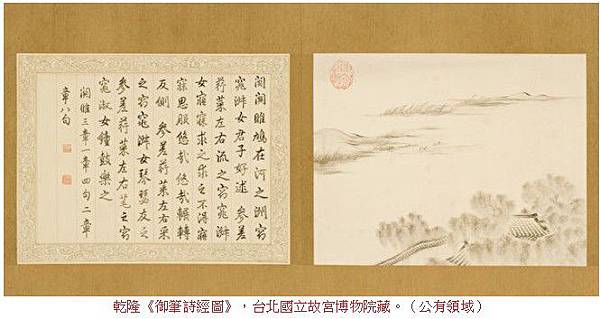 關關雎鳩在河之洲窈
窕淑女君子好逑 參差
荇菜左右流之窈窕淑
女寤寐求之求之不得寤
寐思服悠哉悠哉輾轉
反側 參差荇菜左右采
之窈窕淑女琴瑟友之
參差荇菜左右芼之窈
窕淑女鐘鼓樂之
關雎三章一章四句二章
章八句
乾隆《御筆詩經圖》，台北國立故宮博物院藏。（公有領域）